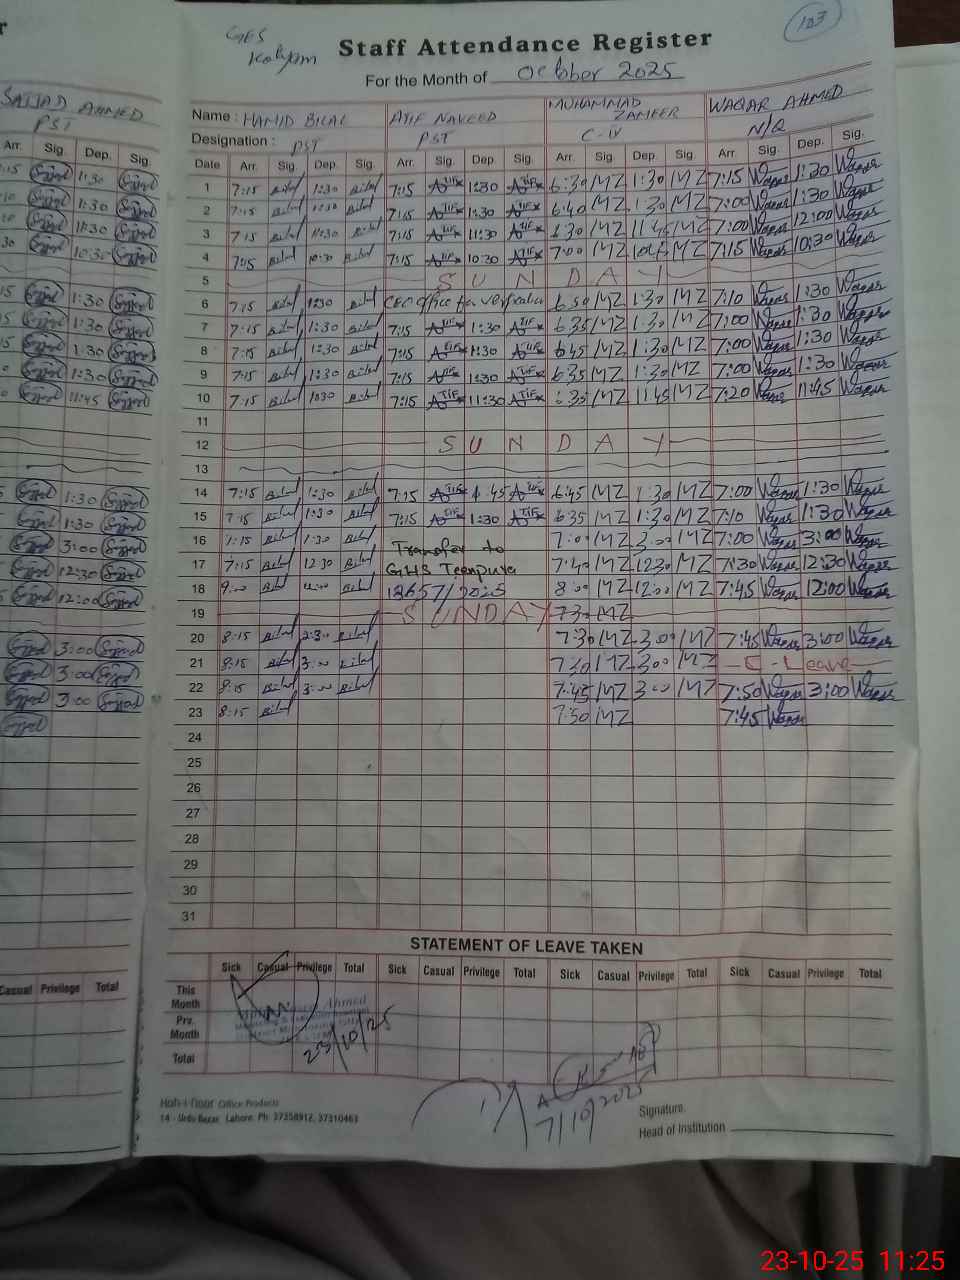 103
GES
Kalyam
Staff Attendance Register
For the Month of October 2025
SAJJAD AHMED
PST
Name : HAMID BILAL ATIF NAVEED MUHAMMAD ZAMEER WAQAR AHMED
Designation : PST PST C-IV N/Q
Arr. Sig. Dep. Sig.
Date Arr. Sig. Dep. Sig. Arr. Sig. Dep. Sig. Arr. Sig. Dep. Sig. Arr. Sig. Dep. Sig.
1 7:15 Bilal 1:30 Bilal 7:15 ATIF 1:30 ATIF 6:30 MZ 1:30 MZ 7:15 Waqar 1:30 Waqar
2 7:15 Bilal 1:30 Bilal 7:15 ATIF 1:30 ATIF 6:40 MZ 1:30 MZ 7:00 Waqar 1:30 Waqar
3 7:15 Bilal 11:30 Bilal 7:15 ATIF 11:30 ATIF 6:30 MZ 11:45 MZ 7:00 Waqar 12:00 Waqar
4 7:15 Bilal 10:30 Bilal 7:15 ATIF 10:30 ATIF 7:00 MZ MZ 7:15 Waqar 10:30 Waqar
5 SUNDAY
6 7:15 Bilal 1:30 Bilal CEO office for verification 6:50 MZ 1:30 MZ 7:10 Waqar 1:30 Waqar
7 7:15 Bilal 1:30 Bilal 7:15 ATIF 1:30 ATIF 6:35 MZ 1:30 MZ 7:00 Waqar 1:30 Waqar
8 7:15 Bilal 1:30 Bilal 7:15 ATIF 1:30 ATIF 6:45 MZ 1:30 MZ 7:00 Waqar 1:30 Waqar
9 7:15 Bilal 1:30 Bilal 7:15 ATIF 1:30 ATIF 6:35 MZ 1:30 MZ 7:00 Waqar 1:30 Waqar
10 7:15 Bilal Bilal 7:15 ATIF 11:30 ATIF 6:35 MZ 11:45 MZ 7:20 Waqar 11:45 Waqar
11
12 SUNDAY
13
14 7:15 Bilal 1:30 Bilal 7:15 ATIF 1:45 ATIF 6:45 MZ 1:30 MZ 7:00 Waqar 1:30 Waqar
15 7:15 Bilal 1:30 Bilal 7:15 ATIF 1:30 ATIF 6:35 MZ 1:30 MZ 7:10 Waqar 1:30 Waqar
16 7:15 Bilal 1:30 Bilal Transfer to 7:00 MZ 3:00 MZ 7:00 Waqar 3:00 Waqar
17 7:15 Bilal 12:30 Bilal GHS 7:40 MZ 12:30 MZ 7:30 Waqar 12:30 Waqar
18 9:00 Bilal 12:00 Bilal 12657/2025 8:00 MZ 12:00 MZ 7:45 Waqar 12:00 Waqar
19 SUNDAY 7:30 MZ
20 8:15 Bilal 2:30 Bilal 7:30 MZ 3:00 MZ 7:45 Waqar 3:00 Waqar
21 8:15 Bilal 3:00 Bilal 7:30 MZ 3:00 MZ C-Leave
22 8:15 Bilal 3:00 Bilal 7:45 MZ 3:00 MZ 7:50 Waqar 3:00 Waqar
23 8:15 Bilal 7:50 MZ 7:45 Waqar
24
25
26
27
28
29
30
31
STATEMENT OF LEAVE TAKEN
Sick Casual Privilege Total Sick Casual Privilege Total Sick Casual Privilege Total Sick Casual Privilege Total
Casual Privilege Total
This Month
Prv. Month
Total
Ahmed
23/10/25
7/10/2025
Office Products
14 - Urdu Bazar, Lahore. Ph: 37358912, 37310461
Signature.
Head of Institution
23-10-25 11:25